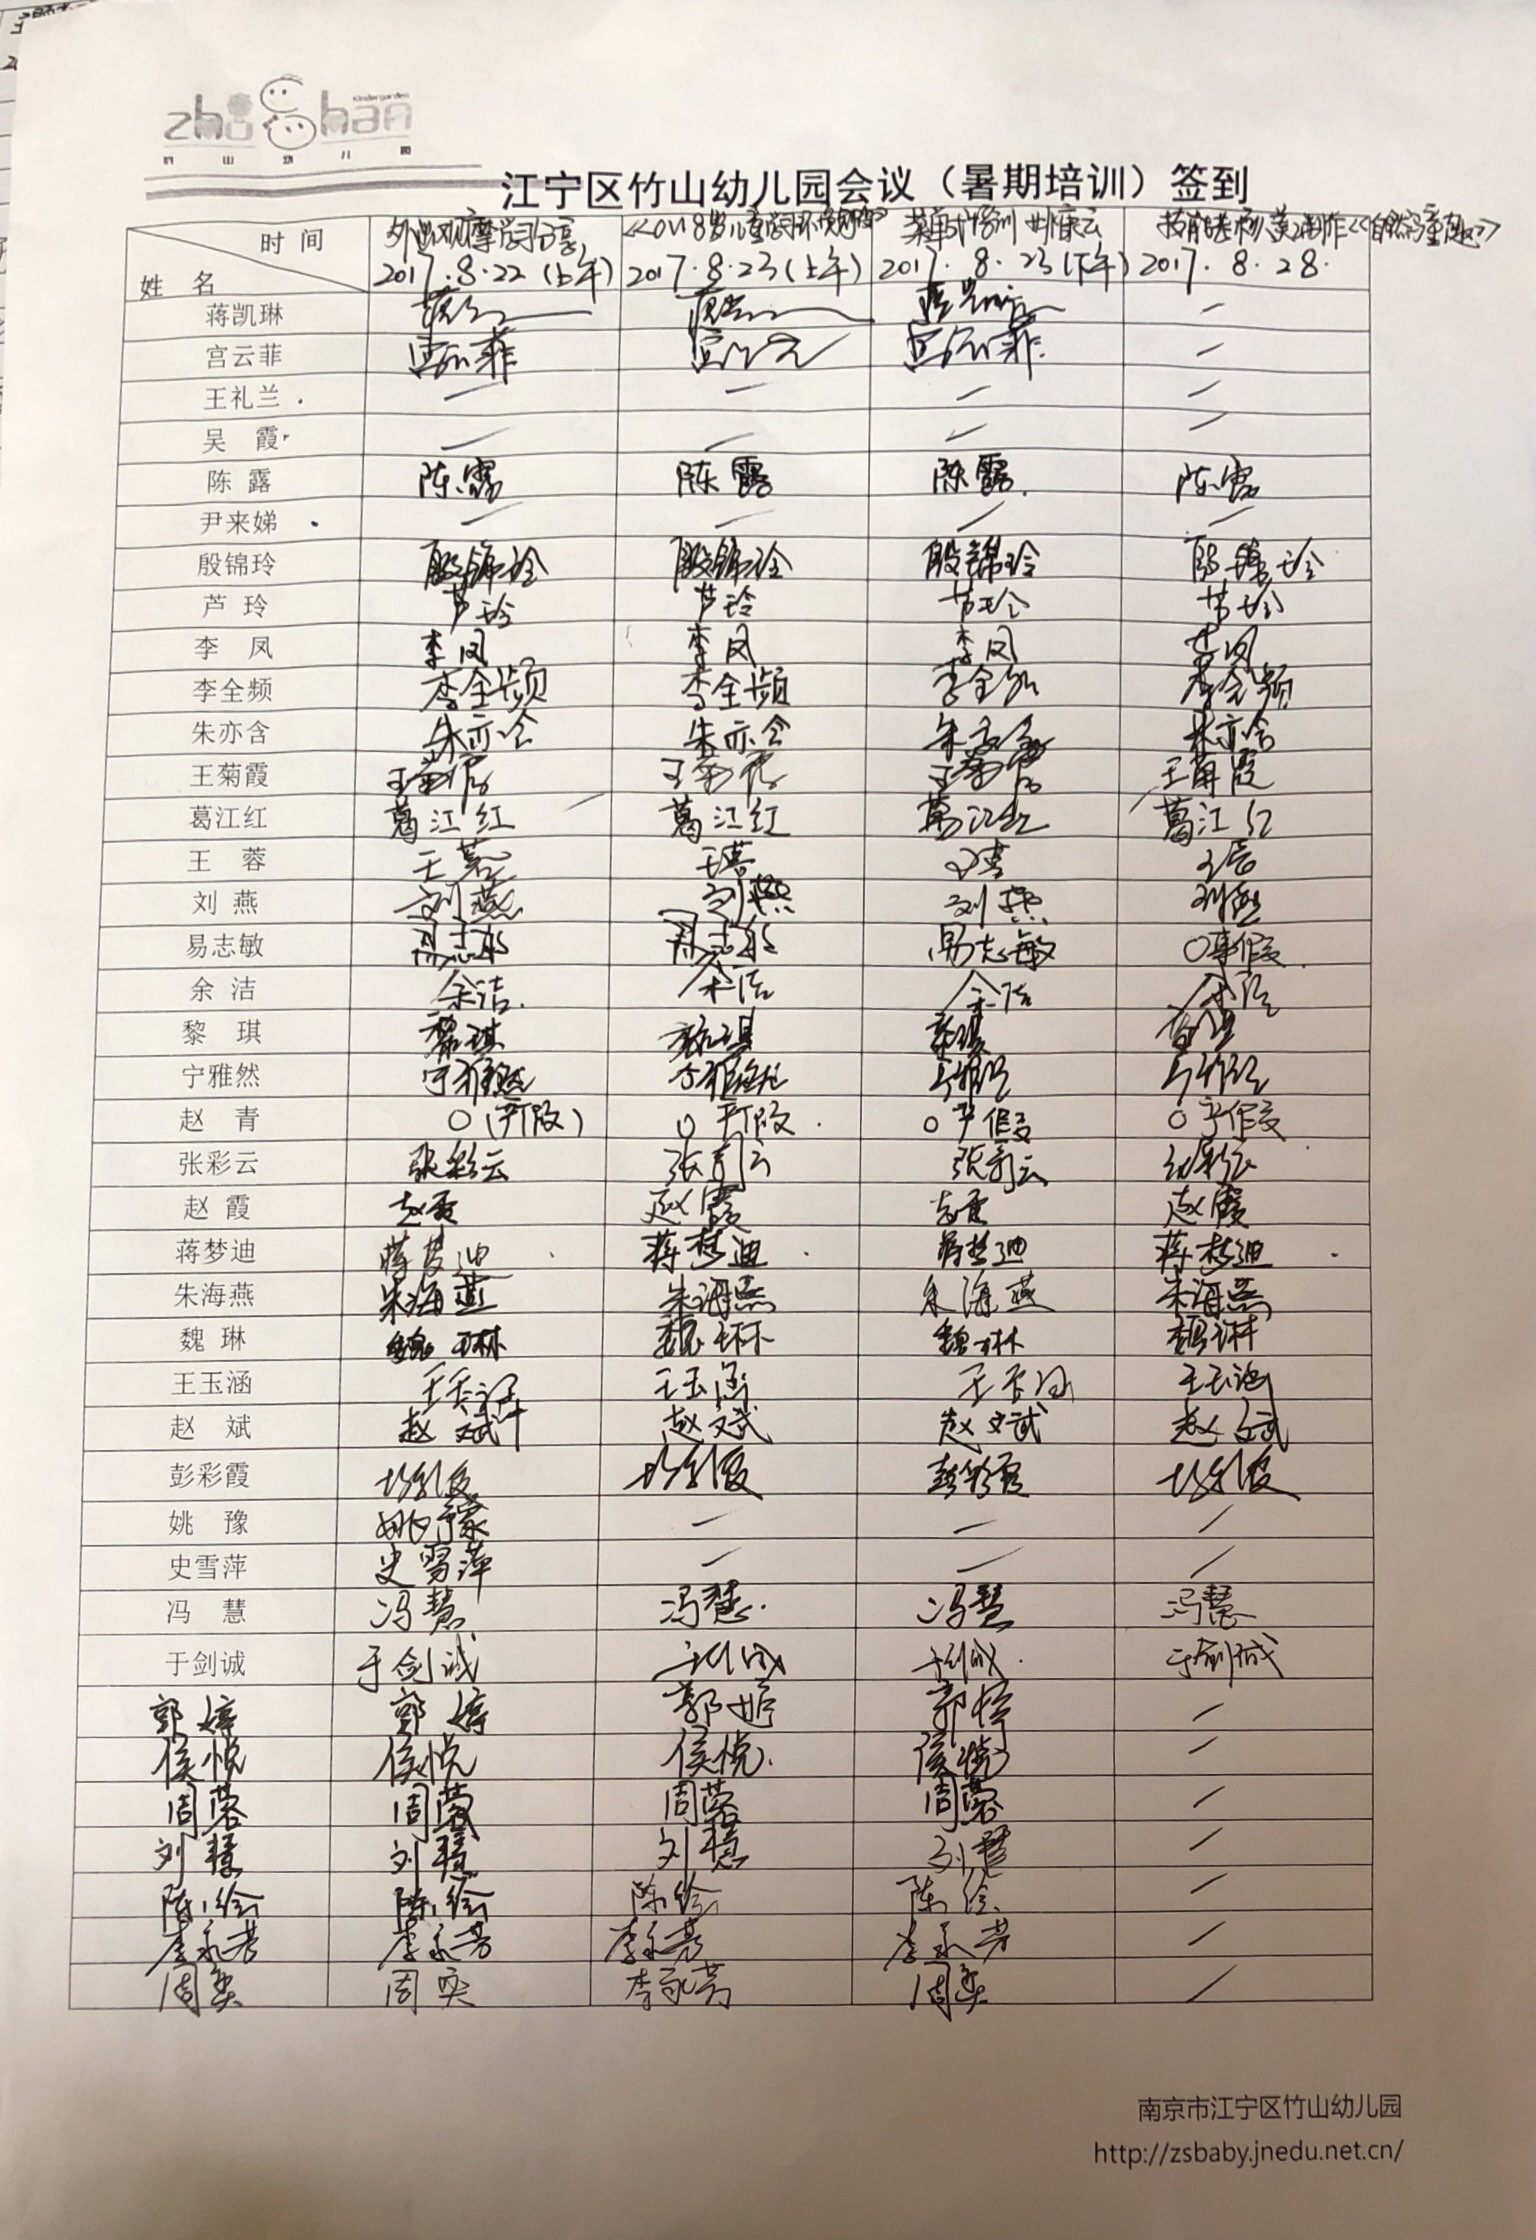 zhushan Kindergarden
竹山幼儿园
江宁区竹山幼儿园会议（暑期培训）签到
时间 外出观摩学习分享 《0-8岁儿童学习环境 菜单式培训 制作《自然 童趣》
姓名 2017.8.22(上午) 2017.8.23(上午) 2017.8.23(下午) 2017.8.28.
蒋凯琳 — 
宫云菲 宫云菲 宫云菲 宫云菲 —
王礼兰 — — — —
吴霞 — — — —
陈露 陈露 陈露 陈露 陈露
尹来娣 — — — —
殷锦玲 殷锦玲 殷锦玲 殷锦玲 殷锦玲
芦玲 芦玲 芦玲 芦玲 芦玲
李凤 李凤 李凤 李凤 李凤
李全频 李全频 李全频 李全频 李全频
朱亦含 朱亦含 朱亦含 朱亦含 朱亦含
王菊霞 王菊霞 王菊霞 王菊霞 王菊霞
葛江红 葛江红 葛江红 葛江红 葛江红
王蓉 王蓉 王蓉 王蓉 王蓉
刘燕 刘燕 刘燕 刘燕 刘燕
易志敏 易志敏 易志敏 易志敏 ○事假
余洁 余洁 余洁 余洁 余洁
黎琪 黎琪 黎琪 黎琪 黎琪
宁雅然 宁雅然 宁雅然 宁雅然 宁雅然
赵青 ○(产假) ○产假 ○产假 ○产假
张彩云 张彩云 张彩云 张彩云 张彩云
赵霞 赵霞 赵霞 赵霞 赵霞
蒋梦迪 蒋梦迪 蒋梦迪 蒋梦迪 蒋梦迪
朱海燕 朱海燕 朱海燕 朱海燕 朱海燕
魏琳 魏琳 魏琳 魏琳 魏琳
王玉涵 王玉涵 王玉涵 王玉涵 王玉涵
赵斌 赵斌 赵斌 赵斌 赵斌
彭彩霞 彭彩霞 彭彩霞 彭彩霞 彭彩霞
姚豫 姚豫 — — —
史雪萍 史雪萍 — — —
冯慧 冯慧 冯慧 冯慧 冯慧
于剑诚 于剑诚 于剑诚 于剑诚 于剑诚
郭婷 郭婷 郭婷 郭婷 —
侯悦 侯悦 侯悦 侯悦 —
周蓉 周蓉 周蓉 周蓉 —
刘慧 刘慧 刘慧 刘慧 —
陈绘 陈绘 陈绘 陈绘 —
李永芳 李永芳 李永芳 李永芳 —
周奕 周奕 李永芳 周奕 —
南京市江宁区竹山幼儿园
http://zsbaby.jnedu.net.cn/